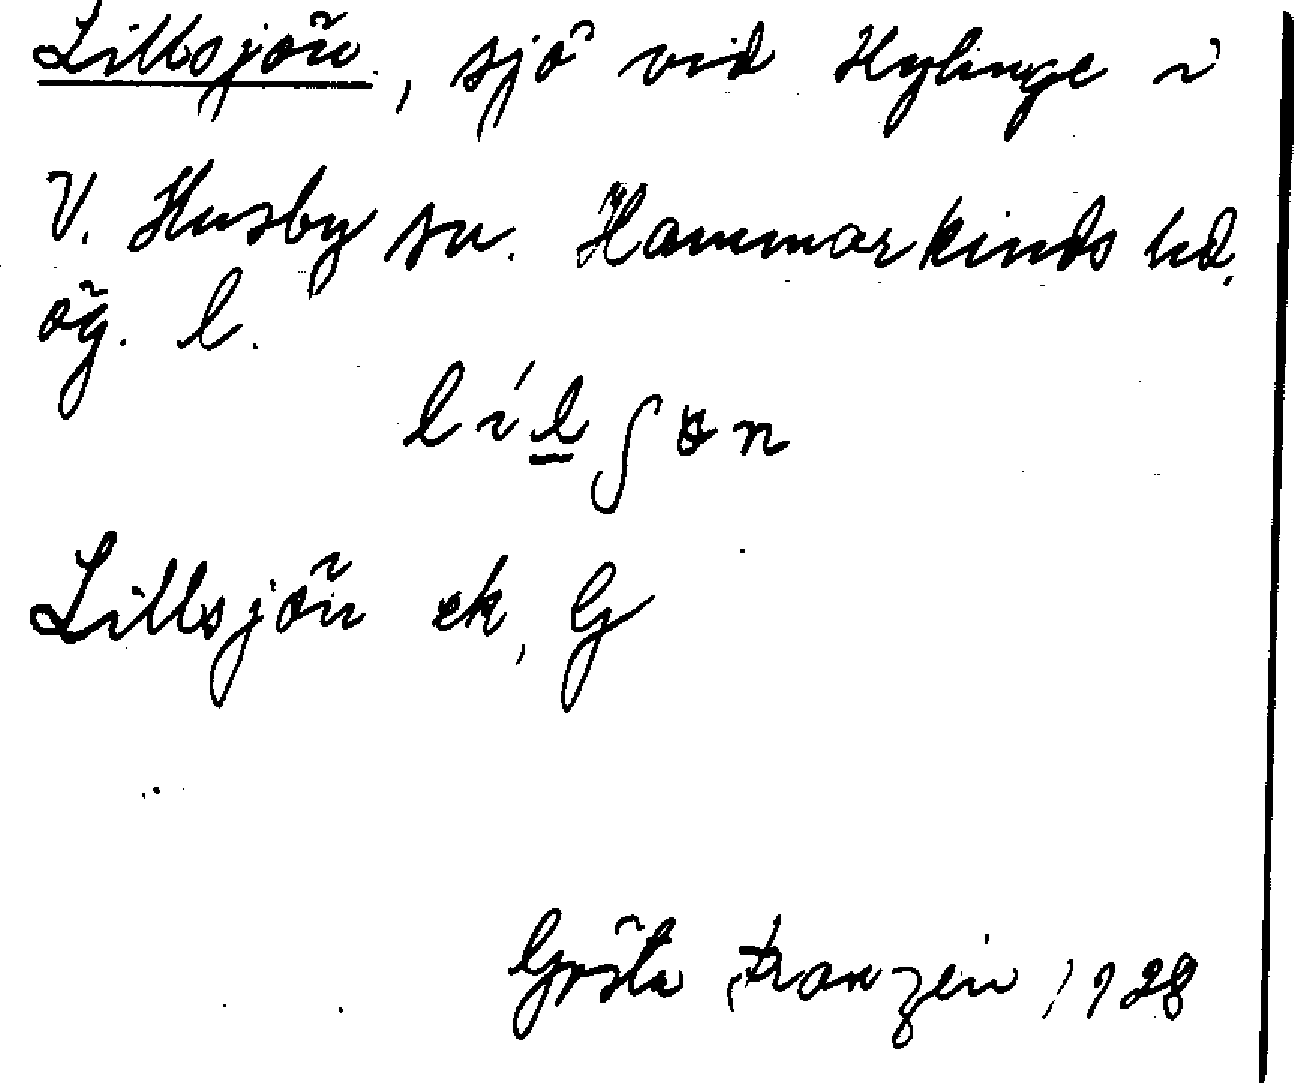 Lillsjön, sjö vid Hylinge i
V. Husby sn. Hammarkinds hd.
Ög. l.
líl̲ʃɵn
Lillsjön ek, G
Gösta Franzén 1928